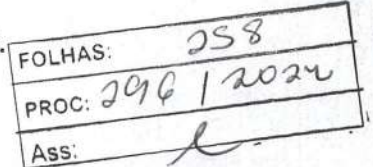 FOLHAS: 258
PROC: 296 /
Ass: